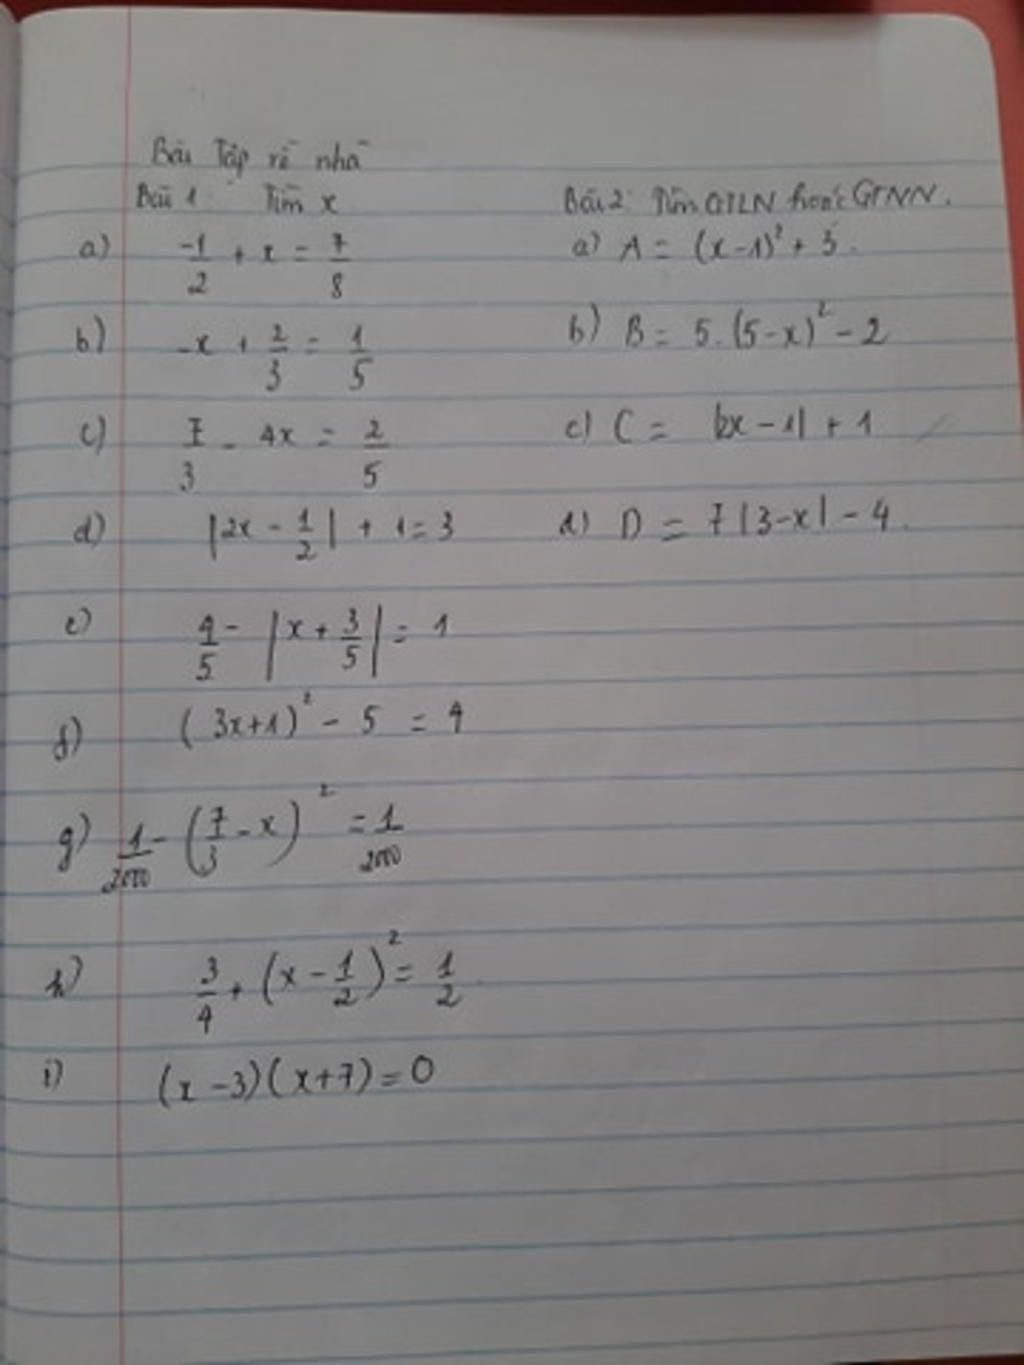 Bài Tập về nhà
Bài 1: Tìm x
a) -1/2 + x = 7/8
b) -x + 2/3 = 1/5
c) 7/3 - 4x = 2/5
d) |2x - 1/2| + 1 = 3
e) 4/5 - |x + 3/5| = 1
f) (3x+1)² - 5 = 4
g) 1/2000 - (7/3 - x)² = 1/2000
h) 3/4 + (x - 1/2)² = 1/2
i) (x - 3)(x + 7) = 0
Bài 2: Tìm GTLN hoặc GTNN.
a) A = (x - 1)² + 3.
b) B = 5.(5-x)² - 2
c) C = |2x - 1| + 1
d) D = 7|3-x| - 4.